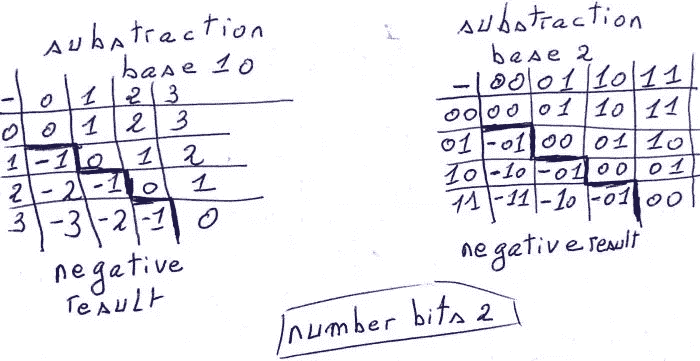 substraction
base 10
- 0 1 2 3
0 0 1 2 3
1 -1 0 1 2
2 -2 -1 0 1
3 -3 -2 -1 0
negative
result
substraction
base 2
- 00 01 10 11
00 00 01 10 11
01 -01 00 01 10
10 -10 -01 00 01
11 -11 -10 -01 00
negative result
number bits 2